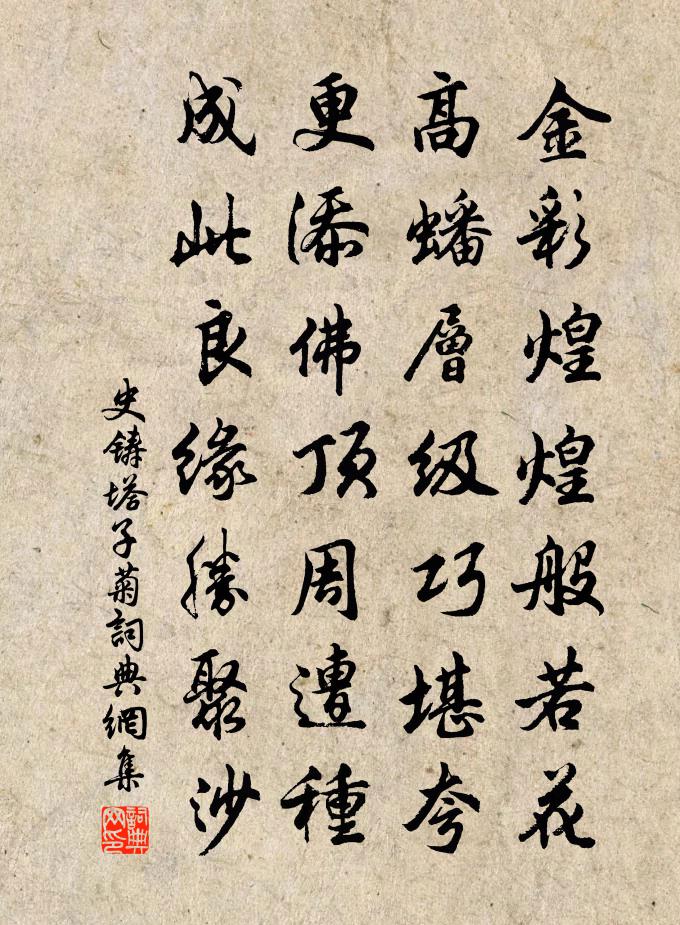 金彩煌煌般若花
高蟠層級巧堪夸
更添佛頂周遭種
成此良緣勝聚沙
史鑄塔子菊詞典網集
詞典網印